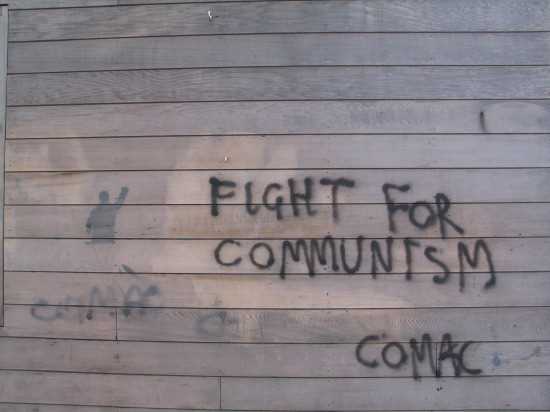 FIGHT FOR
COMMUNISM
COMAC